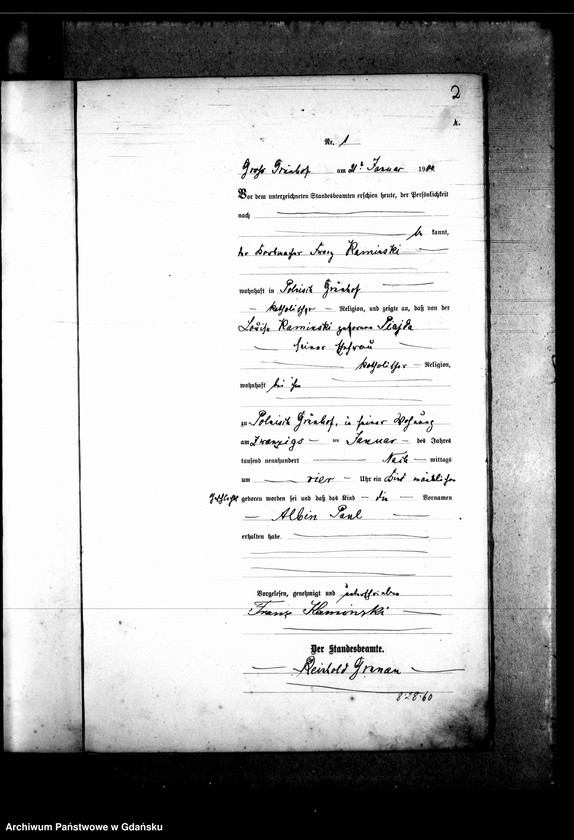 2
A.
Nr. 1
Groß Grünhof am 21t Januar 1900
Vor dem unterzeichneten Standesbeamten erschien heute, der Persönlichkeit
nach
be kannt,
der Korbmacher Franz Kaminski
wohnhaft in Polnisch Grünhof
katholischer Religion, und zeigte an, daß von der
Louise Kaminski geborene
seiner Ehefrau
katholischer Religion,
wohnhaft bei ihm
zu Polnisch Grünhof, in seiner Wohnung
am zwanzigs ten Januar des Jahres
tausend neunhundert Nach mittags
um vier Uhr ein Kind männlichen
Geschlechts geboren worden sei und daß das Kind die Vornamen
Albin Paul
erhalten habe.
Vorgelesen, genehmigt und unterschrieben
Franz Kaminski
Der Standesbeamte.
Reinhold
8·28·60
Archiwum Państwowe w Gdańsku